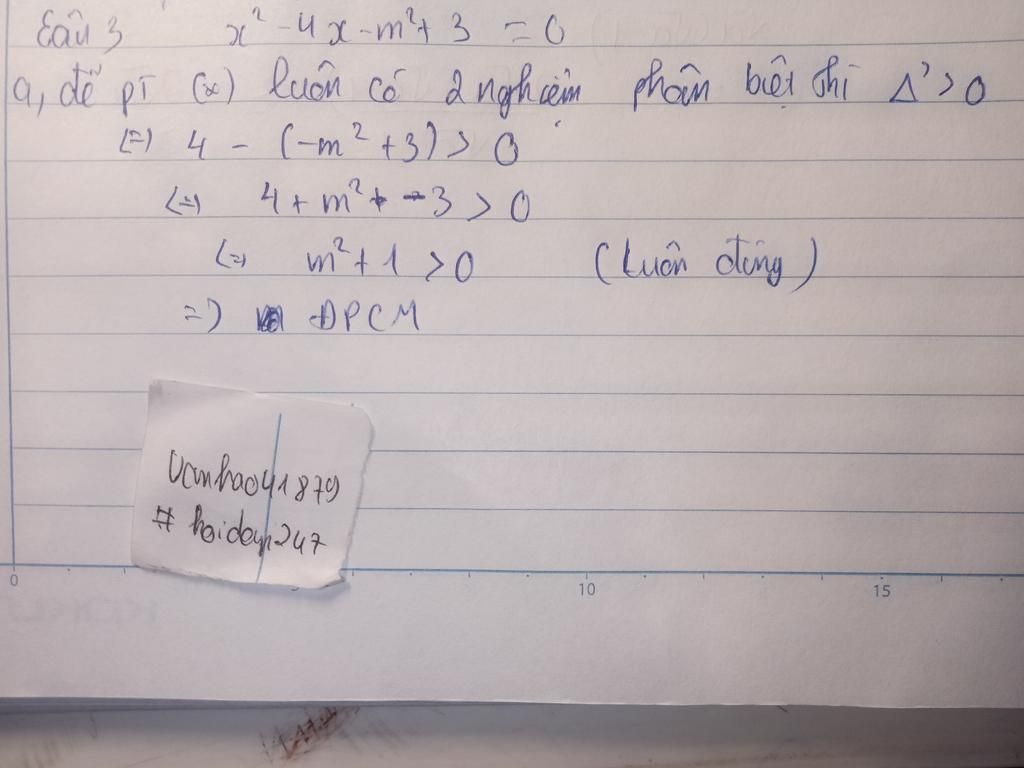 Câu 3 x² - 4x - m² + 3 = 0
a, để pt (*) luôn có 2 nghiệm phân biệt thì Δ' > 0
(=) 4 - (-m² + 3) > 0
(=) 4 + m² - 3 > 0
(=) m² + 1 > 0 (Luôn đúng)
=) ĐPCM
Vanhao41879
# hoidap247
0 5 10 15